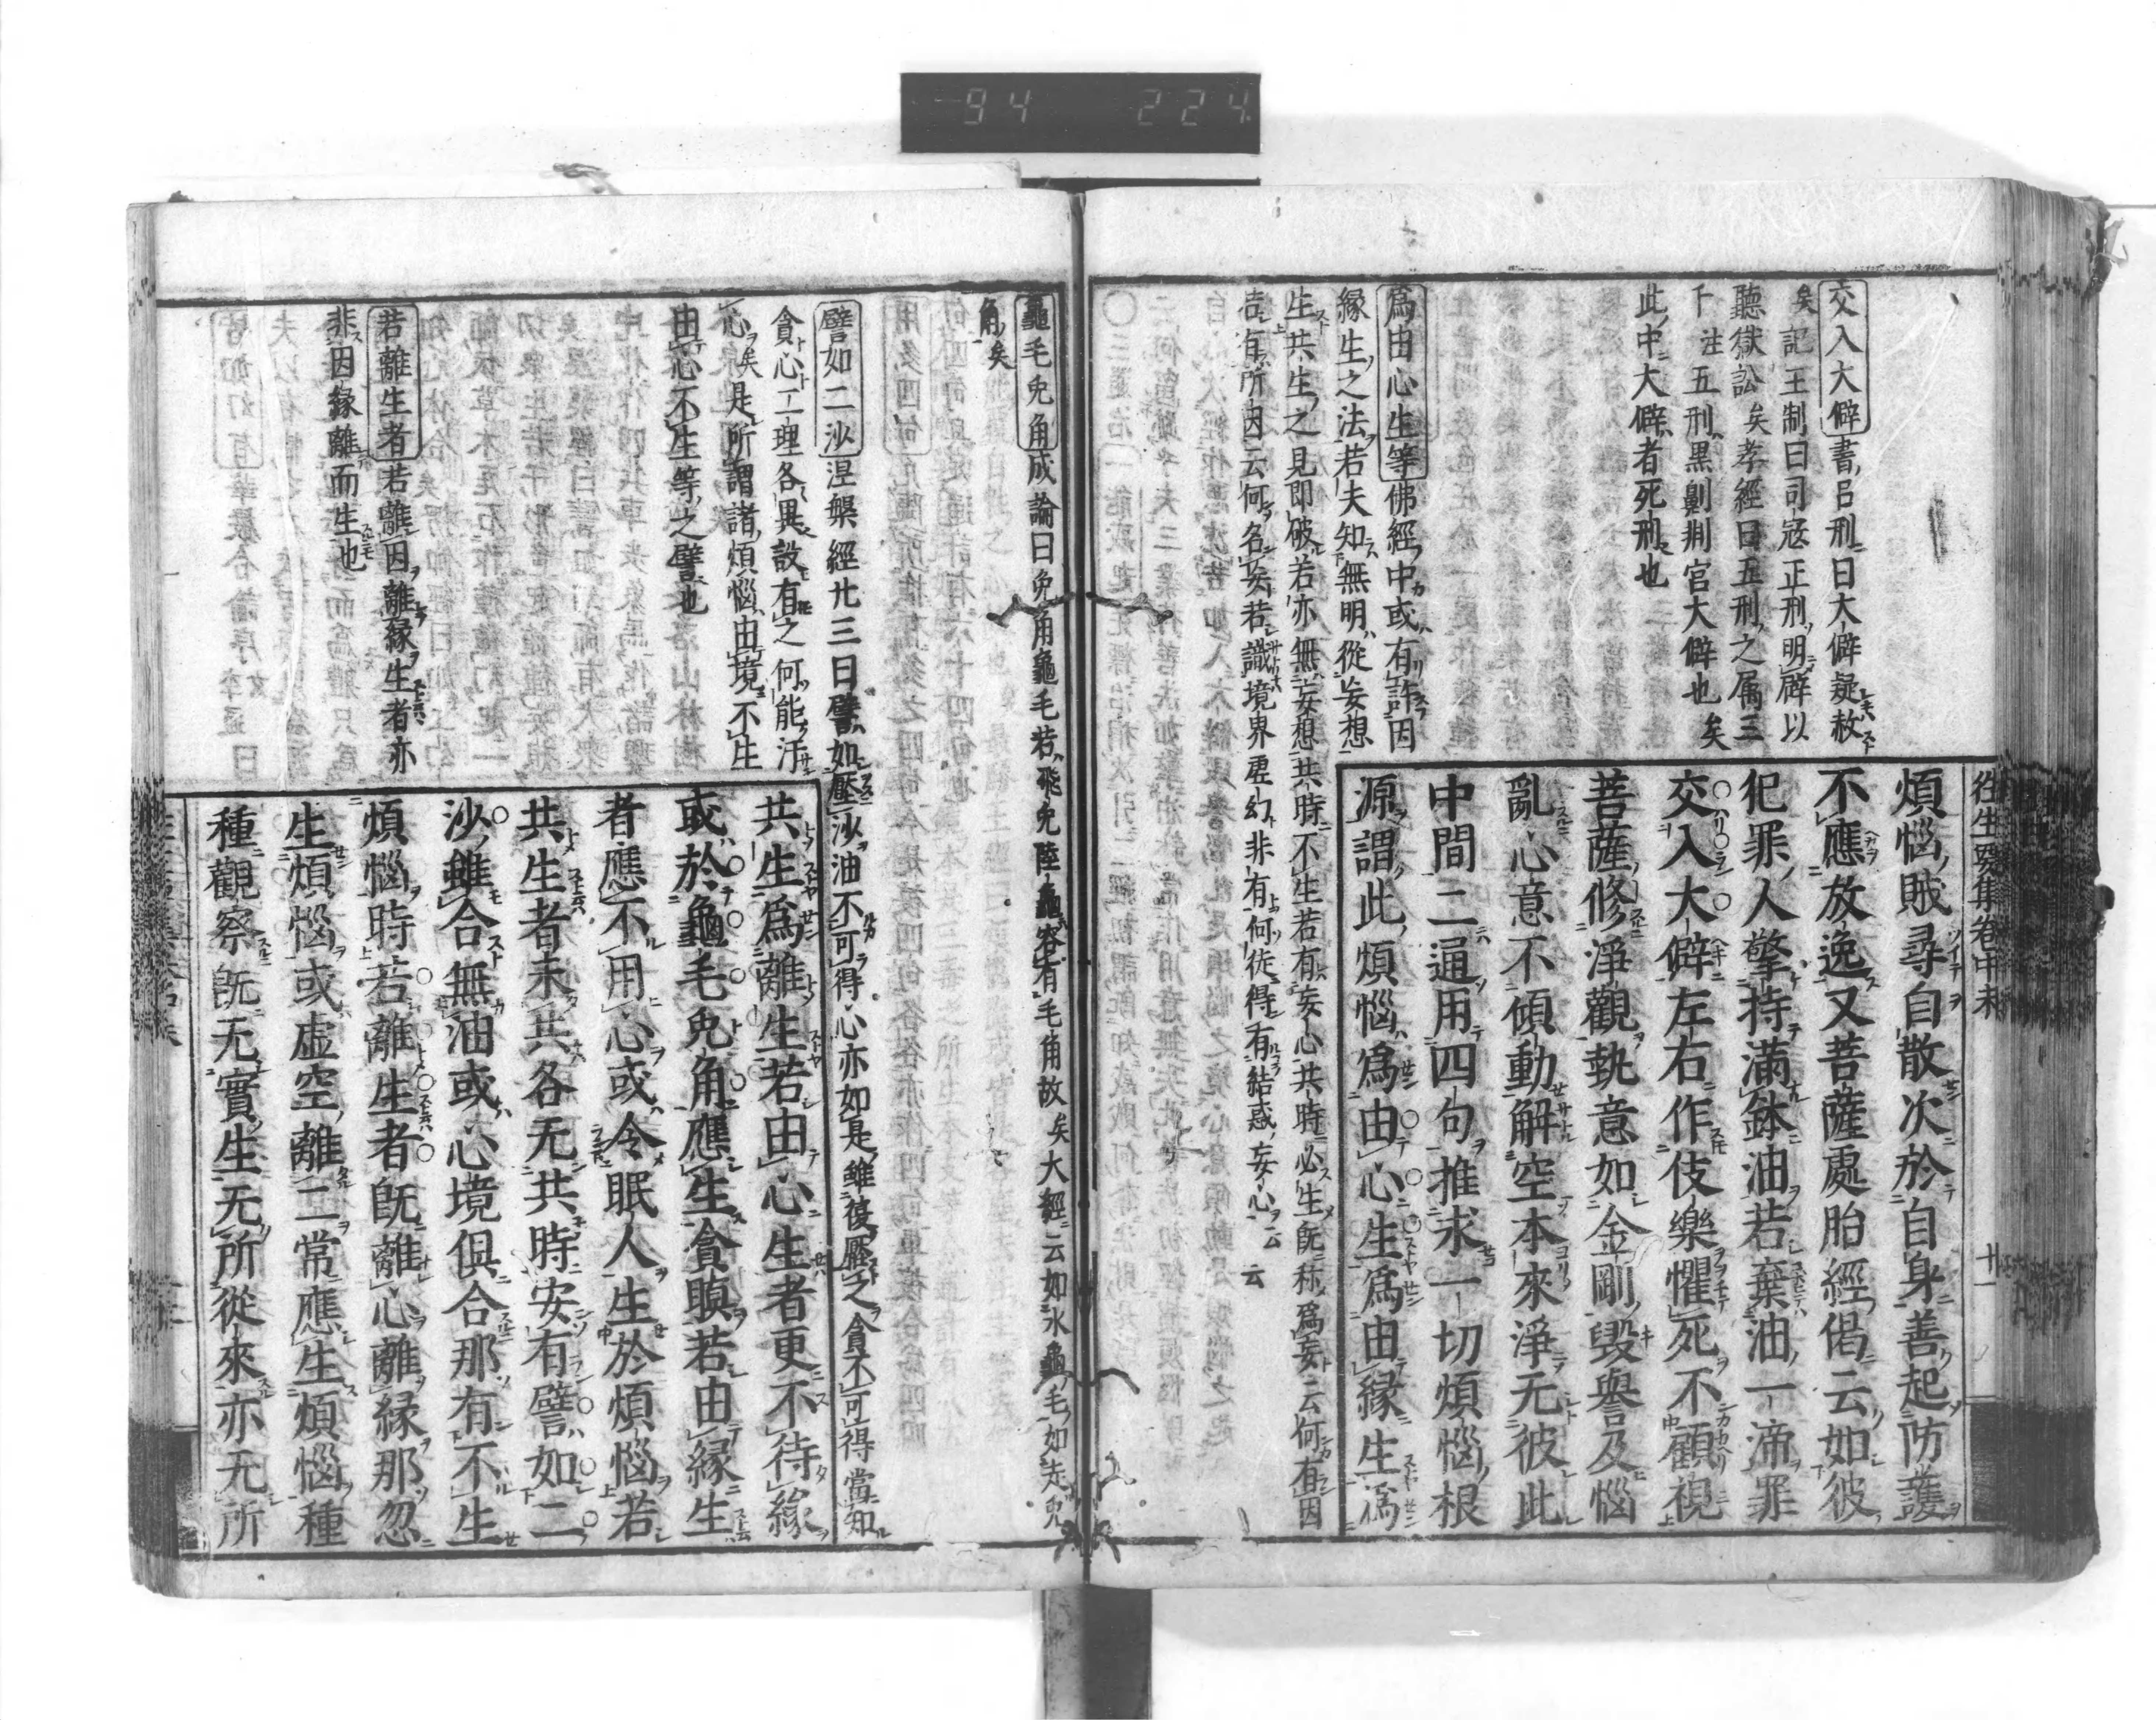 94 224
往生要集卷中末
十一
交入大僻書呂刑曰大僻疑赦
矣 記王制曰司冦正刑明辟以
聽獄訟 矣孝經曰五刑之属三
千 注五刑黑劓荆宮大僻也 矣
此中大僻者死刑也
爲由心生等佛經中或有許因
縁生之法若夫知無明從妄想
生共生之見即破若亦無妄想共時不生若有妄心共時必生旣称爲妄云何有因
若有所因云何名妄若識境界虚幻非有何徒得有結惑妄心 云云
煩惱賊尋自散次於自身善起防護
不應放逸又菩薩處胎經偈云如彼
犯罪人擎持滿鉢油若棄油一渧罪
交入大僻左右作伎樂懼死不顧視
菩薩修淨觀執意如金剛毀譽及惱
亂心意不傾動解空本來淨无彼此
中間二通用四句推求一切煩惱根
源謂此煩惱爲由心生爲由縁生爲
龜毛兎角成論曰兎角龜毛若飛兎陸龜容有毛角故 矣大經云如水龜毛如走兎
角矣
譬如二沙涅槃經廿三曰譬如壓沙油不可得心亦如是雖復壓之貪不可得當知
貪心二理各異設有之何能汙
心矣是所謂諸煩惱由境不生
由心不生等之譬也
若離生者若離因離縁生者亦
非因縁離而生也
共生爲離生若由心生者更不待縁
或於龜毛兎角應生貪瞋若由縁生
者應不用心或令眠人生於煩惱若
共生者未共各无共時安有譬如二
沙雖合無油或心境俱合那有不生
煩惱時若離生者旣離心離縁那忽
生煩惱或虚空離二常應生煩惱種
種觀察旣无實生无所從來亦无所